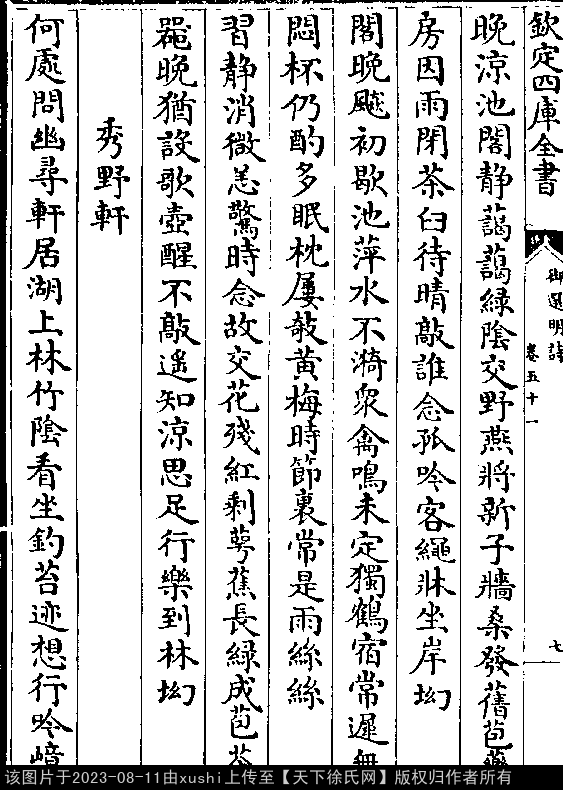 欽定四庫全書
御選明詩
卷五十一
七
晚涼池閣静藹藹緑陰交野燕將新子牆桑發舊苞藥
房因雨閉茶臼待晴敲誰念孤吟客繩牀坐岸坳
閣晚飈初歇池萍水不漪衆禽鳴未定獨鶴宿常遲無
悶杯仍酌多眠枕屢攲黄梅時節裏常是雨絲絲
習静消微恙驚時念故交花殘紅剩萼蕉長緑成苞茶
甌晚猶設歌壺醒不敲遥知涼思足行樂到林坳
秀野軒
何處問幽尋軒居湖上林竹陰看坐釣苔迹想行吟嶂
该图片于2023-08-11由xushi上传至【天下徐氏网】版权归作者所有